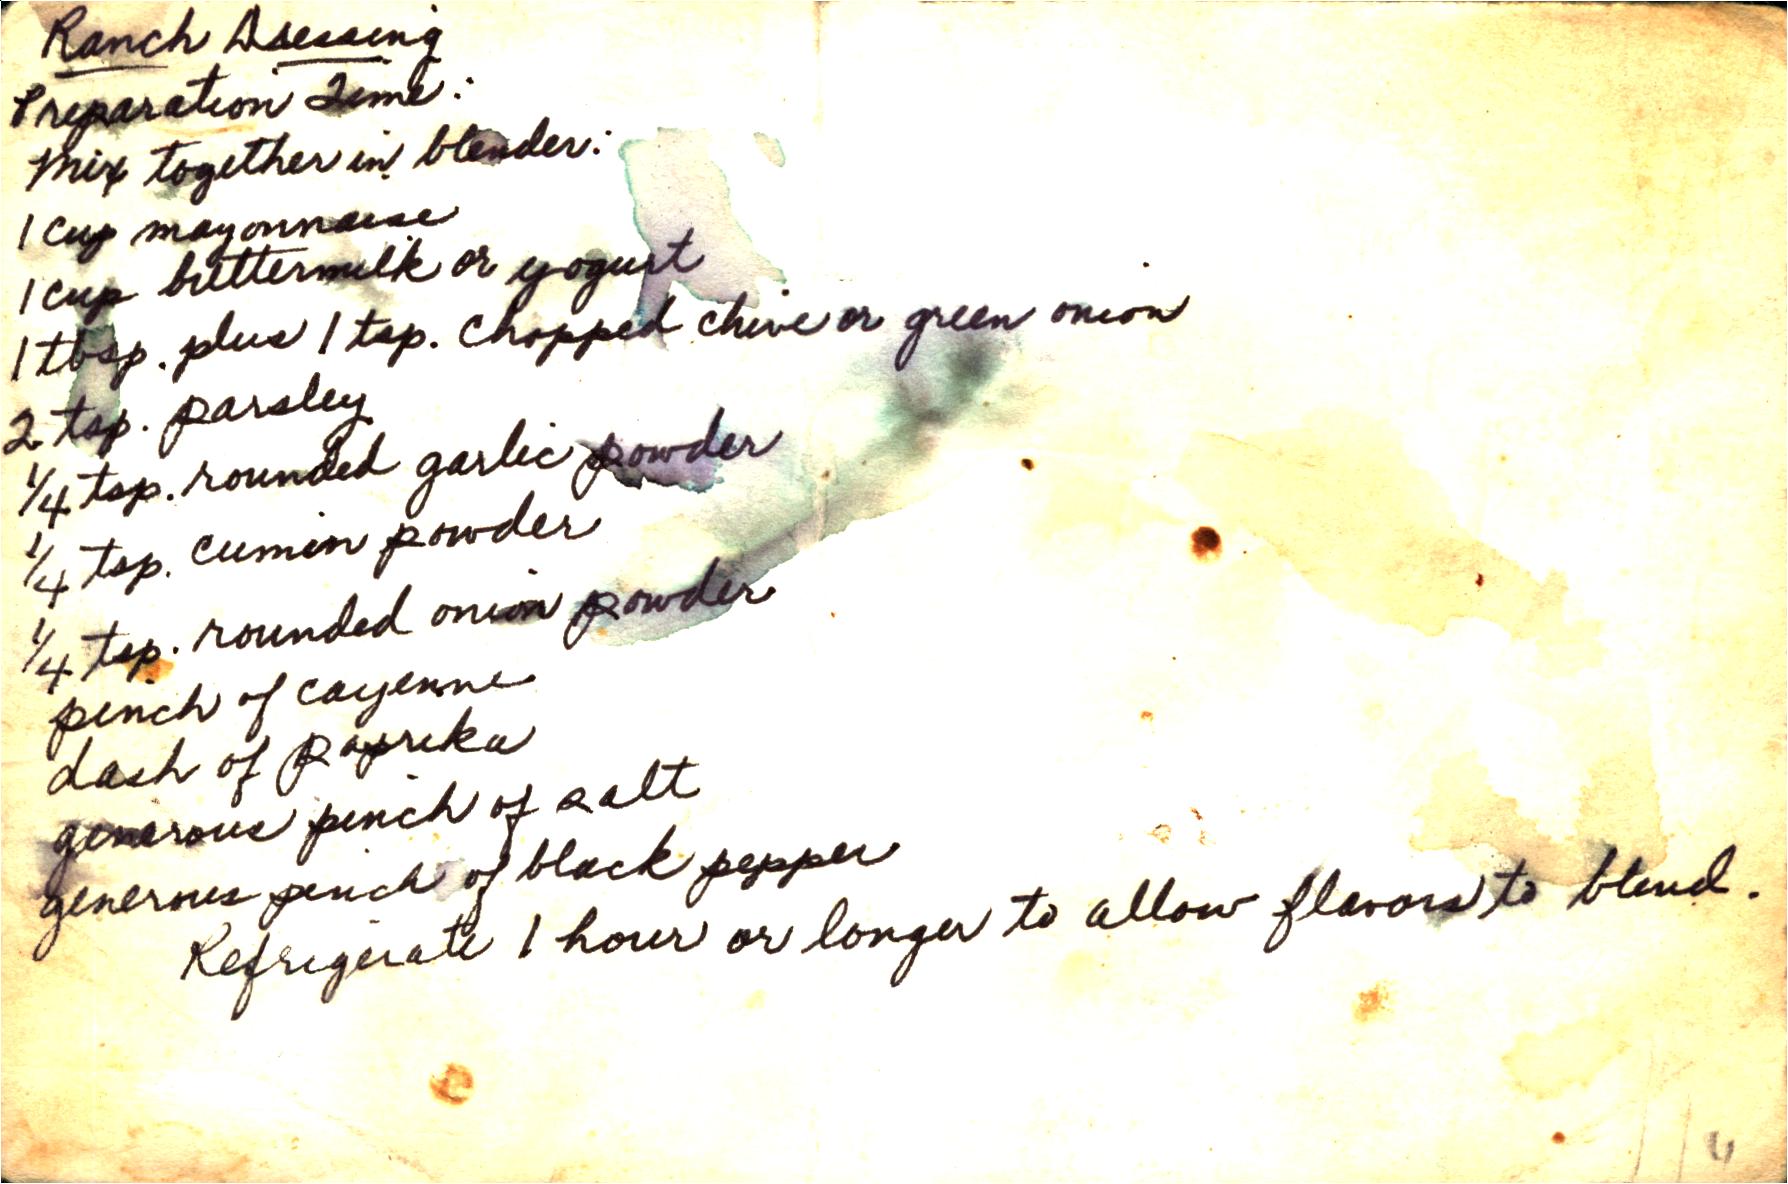 Ranch Dressing
Preparation Time:
Mix together in blender:
1 cup mayonnaise
1 cup buttermilk or yogurt
1 tbsp. plus 1 tsp. chopped chive or green onion
2 tsp. parsley
1/4 tsp. rounded garlic powder
1/4 tsp. cumin powder
1/4 tsp. rounded onion powder
pinch of cayenne
dash of paprika
generous pinch of salt
generous pinch of black pepper
Refrigerate 1 hour or longer to allow flavors to blend.